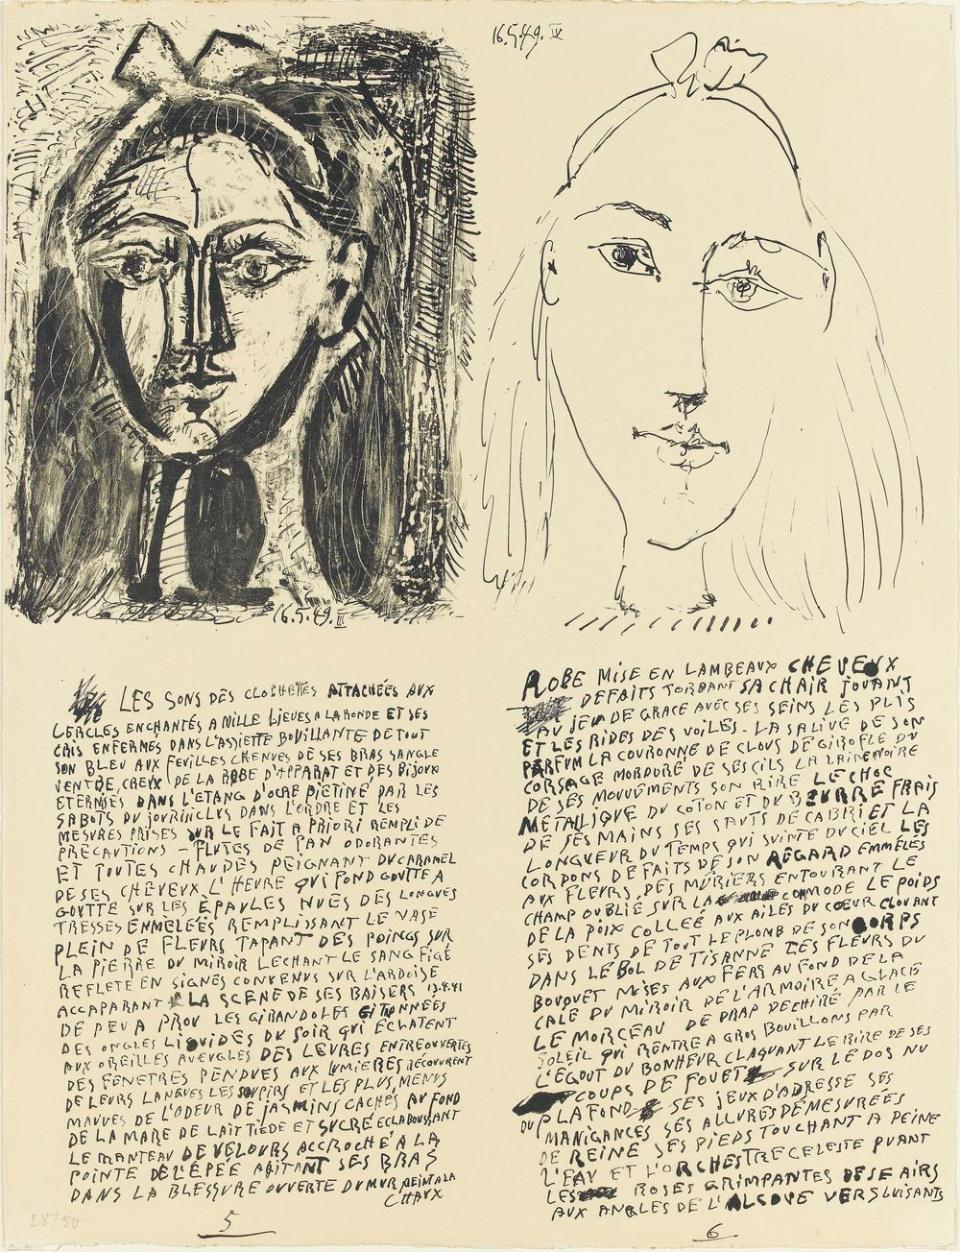 16.5.49. III
LES SONS DES CLOCHETTES ATTACHÉES AUX
CERCLES ENCHANTÉS A MILLE LIEUES A LA RONDE ET SES
CRIS ENFERMÉS DANS L'ASSIETTE BOUILLANTE DE TOUT
SON BLEU AUX FEUILLES CHENUES DE SES BRAS SANGLE
VENTRE, CREUX DE LA ROBE D'APPARAT ET DES BIJOUX
DANS L'ETANG D'OCRE PIETINÉ PAR LES
SABOTS DU DANS L'ORDRE ET LES
MESURES PRISES SUR LE FAIT A PRIORI REMPLI DE
PRECAUTIONS - FLUTES DE PAN ODORANTES
ET TOUTES CHAUDES PEIGNANT DU CARAMEL
DE SES CHEVEUX L'HEURE QUI FOND GOUTTE A
GOUTTE SUR LES ÉPAULES NUES DES LONGUES
TRESSES EMMELÉES REMPLISSANT LE VASE
PLEIN DE FLEURS TAPANT DES POINGS SUR
LA PIERRE DU MIROIR LECHANT LE SANG FIGÉ
REFLETÉ EN SIGNES CONVENUS SUR L'ARDOISE
ACCAPARANT LA SCENE DE SES BAISERS
DE PEU A PROU LES GIRANDOLES CITRONNÉES
DES ONGLES LIQUIDES DU SOIR QUI ÉCLATENT
AUX OREILLES AVEUGLES DES LEVRES ENTREOUVERTES
DES FENETRES PENDUES AUX LUMIERES RECOUVRENT
DE LEURS LANGUES LES SOUPIRS ET LES PLUS MENUS
MAUVES DE L'ODEUR DE JASMINS CACHÉS AU FOND
DE LA MARE DE LAIT TIEDE ET SUCRÉ ECLABOUSSANT
LE MANTEAU DE VELOURS ACCROCHÉ A LA
POINTE DE L'ÉPÉE AGITANT SES BRAS
DANS LA BLESSURE OUVERTE DU MUR PEINT A LA
CHAUX
28/50
5
16.5.49. IV
ROBE MISE EN LAMBEAUX CHEVEUX
DEFAITS TORDANT SA CHAIR JOUANT
AU JEU DE GRACE AVEC SES SEINS LES PLIS
ET LES RIDES DES VOILES. LA SALIVE DE SON
PARFUM LA COURONNE DE CLOUS DE GIROFLE DU
CORSAGE MORDORÉ DE SES CILS LA
DE SES MOUVEMENTS SON RIRE LE CHOC
METALLIQUE DU COTON ET DU BEURRE FRAIS
DE SES MAINS SES SAUTS DE CABRI ET LA
LONGUEUR DU TEMPS QUI SUINTE DU CIEL LES
CORDONS DEFAITS DE SON REGARD EMMÊLÉS
AUX FLEURS, DES MURIERS ENTOURANT LE
CHAMP OUBLIÉ SUR LA COMMODE LE POIDS
DE LA POIX COLLEÉ AUX AILES DU COEUR CLOUANT
SES DENTS DE TOUT LE PLOMB DE SON CORPS
DANS LE BOL DE TISANNE LES FLEURS DU
BOUQUET MISES AUX FERS AU FOND DE LA
CALE DU MIROIR DE L'ARMOIRE A GLACE
LE MORCEAU DE DRAP DECHIRÉ PAR LE
SOLEIL QUI RENTRE A GROS BOUILLONS PAR
L'ÉGOUT DU BONHEUR CLAQUANT LE RIRE DE SES
COUPS DE FOUET SUR LE DOS NU
DU PLAFOND SES JEUX D'ADRESSE SES
MANIGANCES SES ALLURES DÉMESURÉES
DE REINE SES PIEDS TOUCHANT A PEINE
L'EAU ET L'ORCHESTRE CELESTE PUANT
LES ROSES GRIMPANTES DE SE AIRS
AUX ANGLES DE L'ALCOVE VERS LUISANTS
6